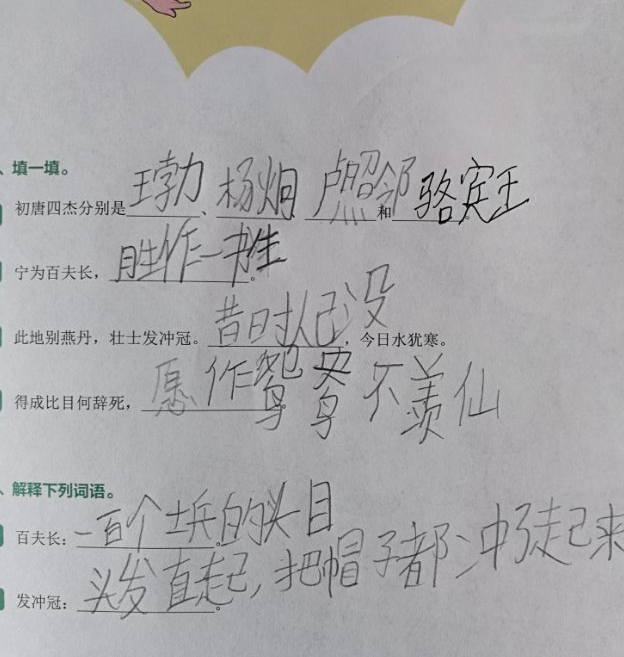 、填一填。
初唐四杰分别是王勃、杨炯 卢照邻和骆宾王。
宁为百夫长，胜作一书生。
此地别燕丹，壮士发冲冠。昔日时人已没，今日水犹寒。
得成比目何辞死，愿作鸳鸯不羡仙
、解释下列词语。
百夫长：一百个士兵的头目。
发冲冠：头发直起，把帽子都冲了起来。